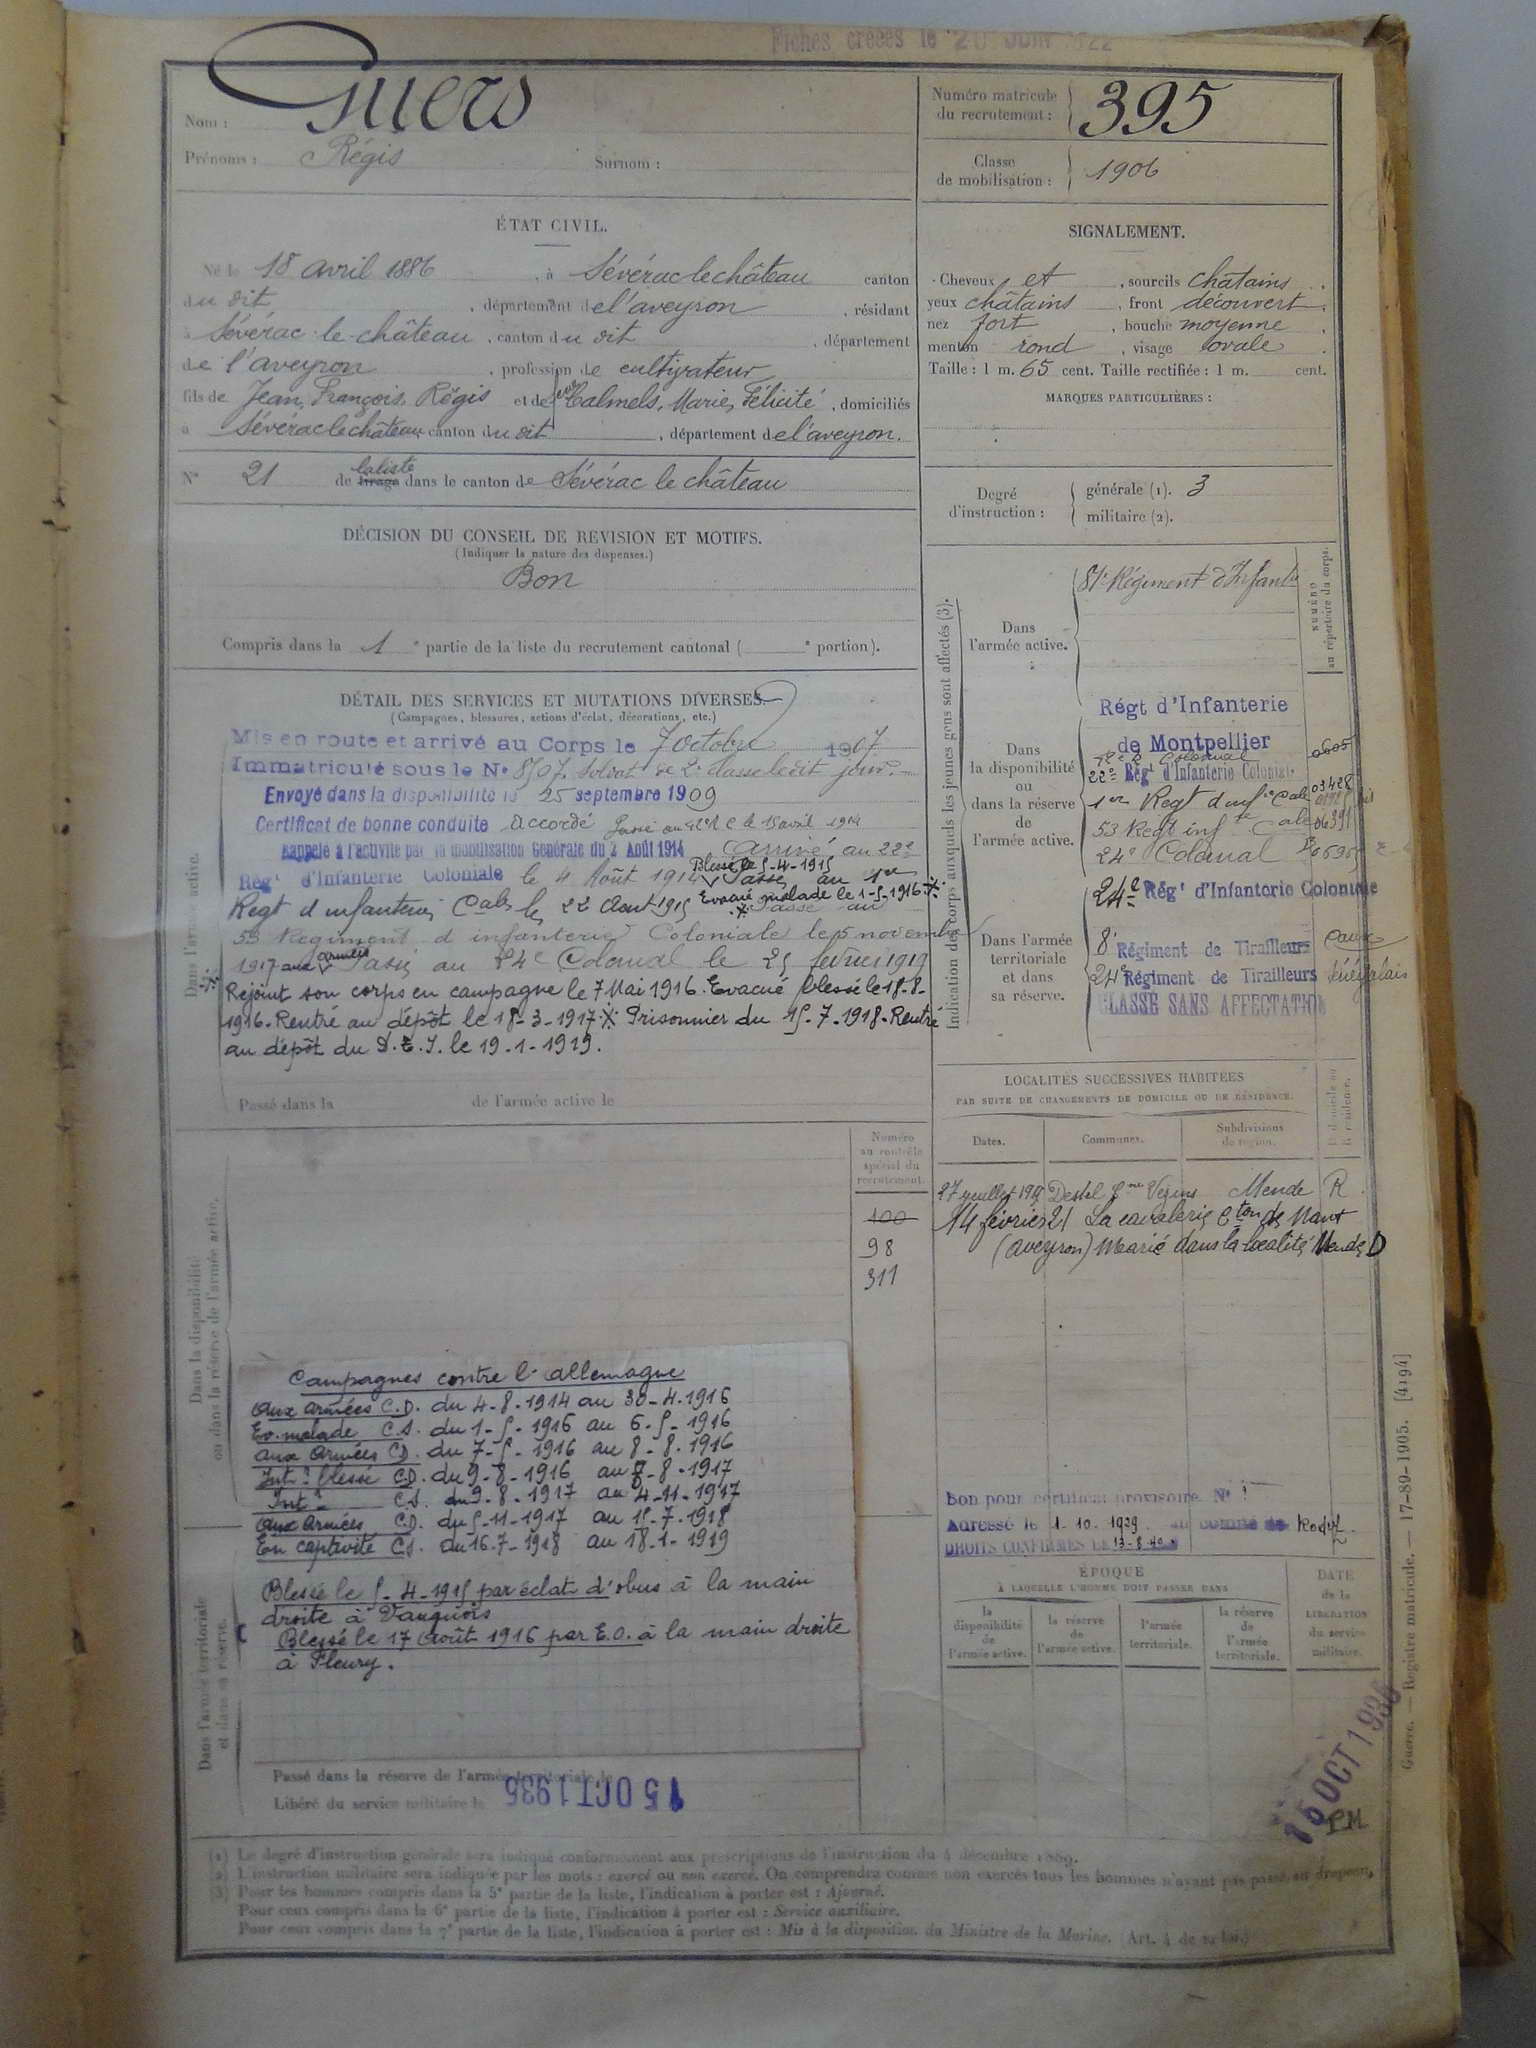 Fiches créées le 20 JUIN 1922
Nom : Guers
Prénoms : Régis Surnom :
Numéro matricule du recrutement : 395
Classe de mobilisation : 1906
ÉTAT CIVIL.
Né le 18 avril 1886, à Sévérac le château canton
du dit, département de l'aveyron, résidant
à Sévérac le château, canton du dit, département
de l'aveyron, profession de cultivateur
fils de Jean, François, Régis et de Calmels, Marie, Félicité, domiciliés
à Sévérac le château canton du dit, département de l'aveyron.
N° 21 de tirage la liste dans le canton de Sévérac le château
SIGNALEMENT.
Cheveux et, sourcils châtains
yeux châtains, front découvert
nez fort, bouche moyenne
menton rond, visage ovale
Taille : 1 m. 65 cent. Taille rectifiée : 1 m. cent.
MARQUES PARTICULIÈRES :
Degré d'instruction : générale (1). 3
militaire (2).
DÉCISION DU CONSEIL DE REVISION ET MOTIFS.
(Indiquer la nature des dispenses.)
Bon
Compris dans la 1e partie de la liste du recrutement cantonal ( e portion).
DÉTAIL DES SERVICES ET MUTATIONS DIVERSES.
(Campagnes, blessures, actions d'éclat, décorations, etc.)
Dans l'armée active.
Mis en route et arrivé au Corps le 7 octobre 1907
Immatriculé sous le N° 8707. Soldat de 2e classe le dit jour.
Envoyé dans la disponibilité le 25 septembre 1909
Certificat de bonne conduite Accordé Passé au 22e R C le 15 avril 1914
Rappelé à l'activité par la mobilisation Générale du 2 Août 1914 Arrivé au 22e
Régt d'Infanterie Coloniale le 4 Août 1914 Blessé le 5-4-1915 Passé au 1er
Regt d'infanterie Cale le 22 Aout 1915 Evacué malade le 1-5-1916 Passé au
53 Régiment d'infanterie Coloniale le 5 novembre
1917 aux armées Passé au 24e Colonial le 25 fevrier 1919
Rejoint son corps en campagne le 7 Mai 1916. Evacué blessé le 18-8-
1916. Rentré au dépôt le 18-3-1917 Prisonnier du 15-7-1918. Rentré
au dépôt du D.E.I. le 19-1-1919.
Passé dans la de l'armée active le
Indication des corps auxquels les jeunes gens sont affectés (3).
NUMÉRO au répertoire du corps.
Dans l'armée active.
81e Régiment d'Infantie
Dans la disponibilité ou dans la réserve de l'armée active.
Régt d'Infanterie
de Montpellier 0605
22e Régt d'Infanterie Coloniale 03428
1er Regt d'infie Cale
53 Regt infte Cale 06391
24e Colonial
Dans l'armée territoriale et dans sa réserve.
24e Régt d'Infanterie Coloniale
8e Régiment de Tirailleurs
24e Régiment de Tirailleurs Sénégalais
CLASSE SANS AFFECTATION
LOCALITÉS SUCCESSIVES HABITÉES
PAR SUITE DE CHANGEMENTS DE DOMICILE OU DE RÉSIDENCE.
Dates. Communes. Subdivisions de région. D domicile ou R résidence.
Mende R
14 février 21 La cavalerie Cton de Nant
(aveyron) Marié dans la localité Mende D
Dans la disponibilité ou dans la réserve de l'armée active.
Numéro au contrôle spécial du recrutement.
100
98
311
Campagnes contre l'allemagne
Aux armées C.D. du 4-8-1914 au 30-4-1916
Ev. malade C.S. du 1-5-1916 au 6-5-1916
aux armées C.D. du 7-5-1916 au 8-8-1916
Intr blessé C.D. du 9-8-1916 au 8-8-1917
Intr C.S. du 9-8-1917 au 4-11-1917
aux armées C.D. du 5-11-1917 au 15-7-1918
En captivité C.S. du 16-7-1918 au 18-1-1919
Blessé le 5-4-1915 par éclat d'obus à la main
droite à Vauquois
Blessé le 17 Août 1916 par E.O. à la main droite
à Fleury.
Dans l'armée territoriale et dans sa réserve.
Passé dans la réserve de l'armée territoriale le
Libéré du service militaire le 15 OCT 1935
Bon pour certificat provisoire N°
Adressé le 1-10-1929 au Rodez
DROITS CONFIRMES LE 13-8-40
ÉPOQUE
À LAQUELLE L'HOMME DOIT PASSER DANS
la disponibilité de l'armée active. la réserve de l'armée active. l'armée territoriale. la réserve de l'armée territoriale.
DATE de la LIBÉRATION du service militaire.
15 OCT 1935
P.M.
Guerre. — Registre matricule. — 17-89-1905. [4194]
(1) Le degré d'instruction générale sera indiqué conformément aux prescriptions de l'instruction du 4 décembre 1889.
(2) L'instruction militaire sera indiquée par les mots : exercé ou non exercé. On comprendra comme non exercés tous les hommes n'ayant pas passé au drapeau.
(3) Pour les hommes compris dans la 5e partie de la liste, l'indication à porter est : Ajourné.
Pour ceux compris dans la 6e partie de la liste, l'indication à porter est : Service auxiliaire.
Pour ceux compris dans la 7e partie de la liste, l'indication à porter est : Mis à la disposition du Ministre de la Marine. (Art. 4 de la loi.)